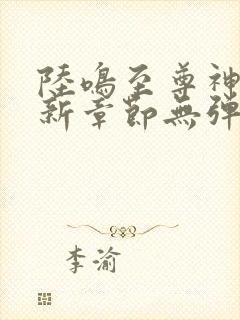 陸鳴至尊神
新章節無彈
李渝